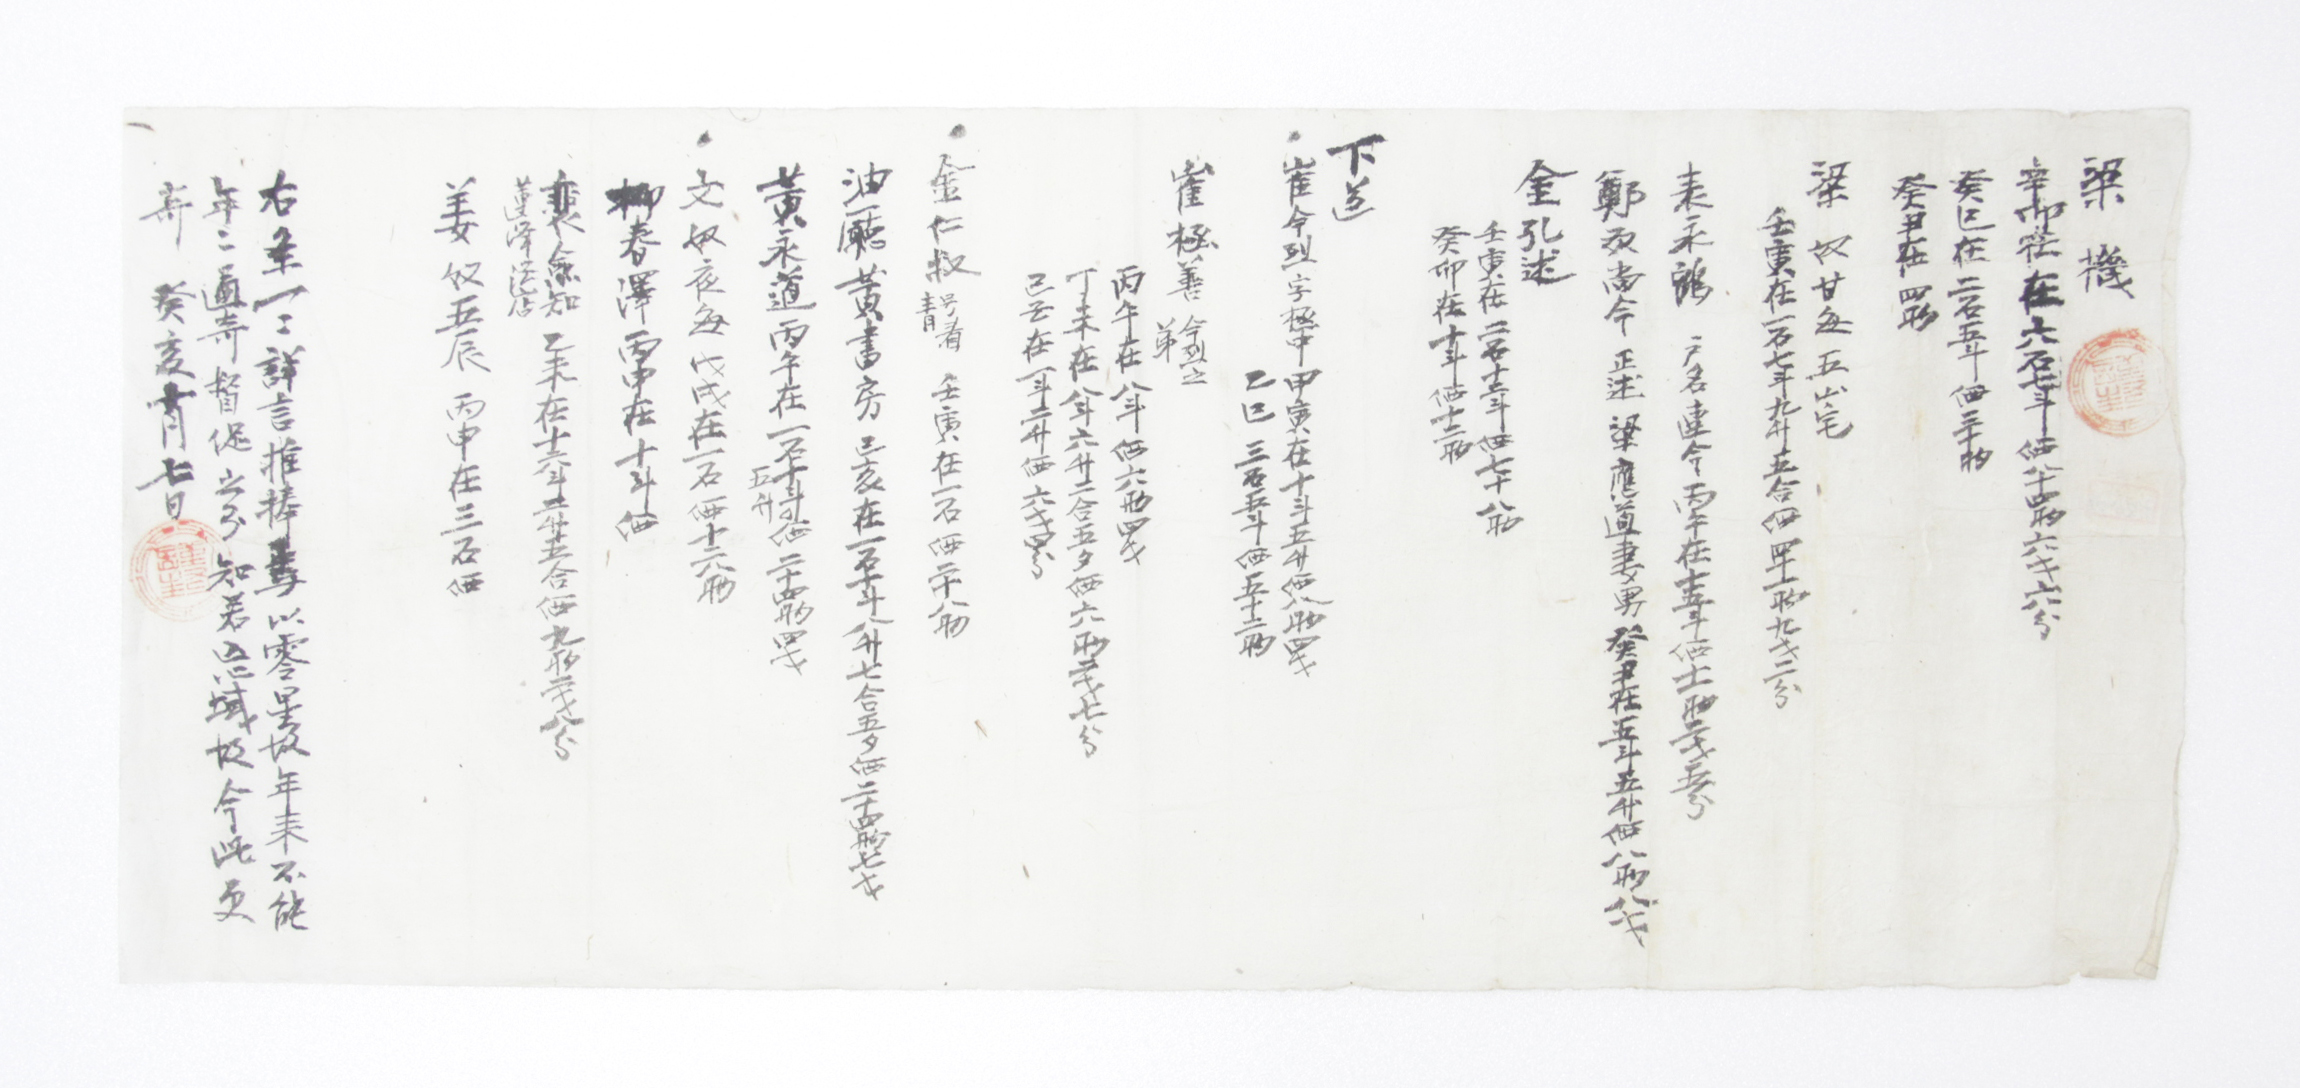 梁 機
辛卯在六石七斗価八十四兩六戈六分
癸巳在二石五斗価三十兩
癸丑在四兩
梁奴甘每五山宅
壬寅在一石七斗九升五合価四十一兩九戈二分
表永鶴 戶名連今丙午在十五斗価十一兩二戈五分
鄭奴尚今 正述 梁應道妻男 癸丑在五斗五升価八兩八戈
金孔述
壬寅在二石十二斗価七十八兩
癸卯在十斗価十二兩
下道
崔令烈字極中 甲寅在十斗五升価八兩四戈
乙巳 三石五斗価五十二兩
崔極善 令烈之弟
丙午在八斗価六兩四戈
丁未在八斗六升二合五夕価六兩二戈七分
己亥在一斗二升価六戈四分
金仁叔 壬寅在一石価二十八兩
油廳黃書房 己亥在一石十斗八升七合五夕価二十四兩七戈
黃永道 丙午在一石十斗五升価二十四兩四戈
文奴夜每 戊戌在一石価十六兩
柳春澤 丙申在十斗価
裴僉知 乙未在十六斗二升五合価九兩二戈八分
姜奴五辰 丙申在三石価
右条一一詳言推捧事以零星故年來不能
年二通寄督促之分知若區域故今此更
寄 癸亥十月七日